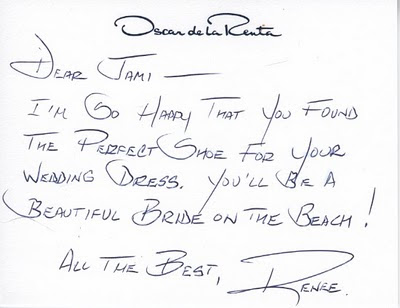 Oscar de la Renta
Dear Jami —
I'm So Happy That You Found
The Perfect Shoe For Your
Wedding Dress. You'll Be A
Beautiful Bride on The Beach!
All The Best, Renee.